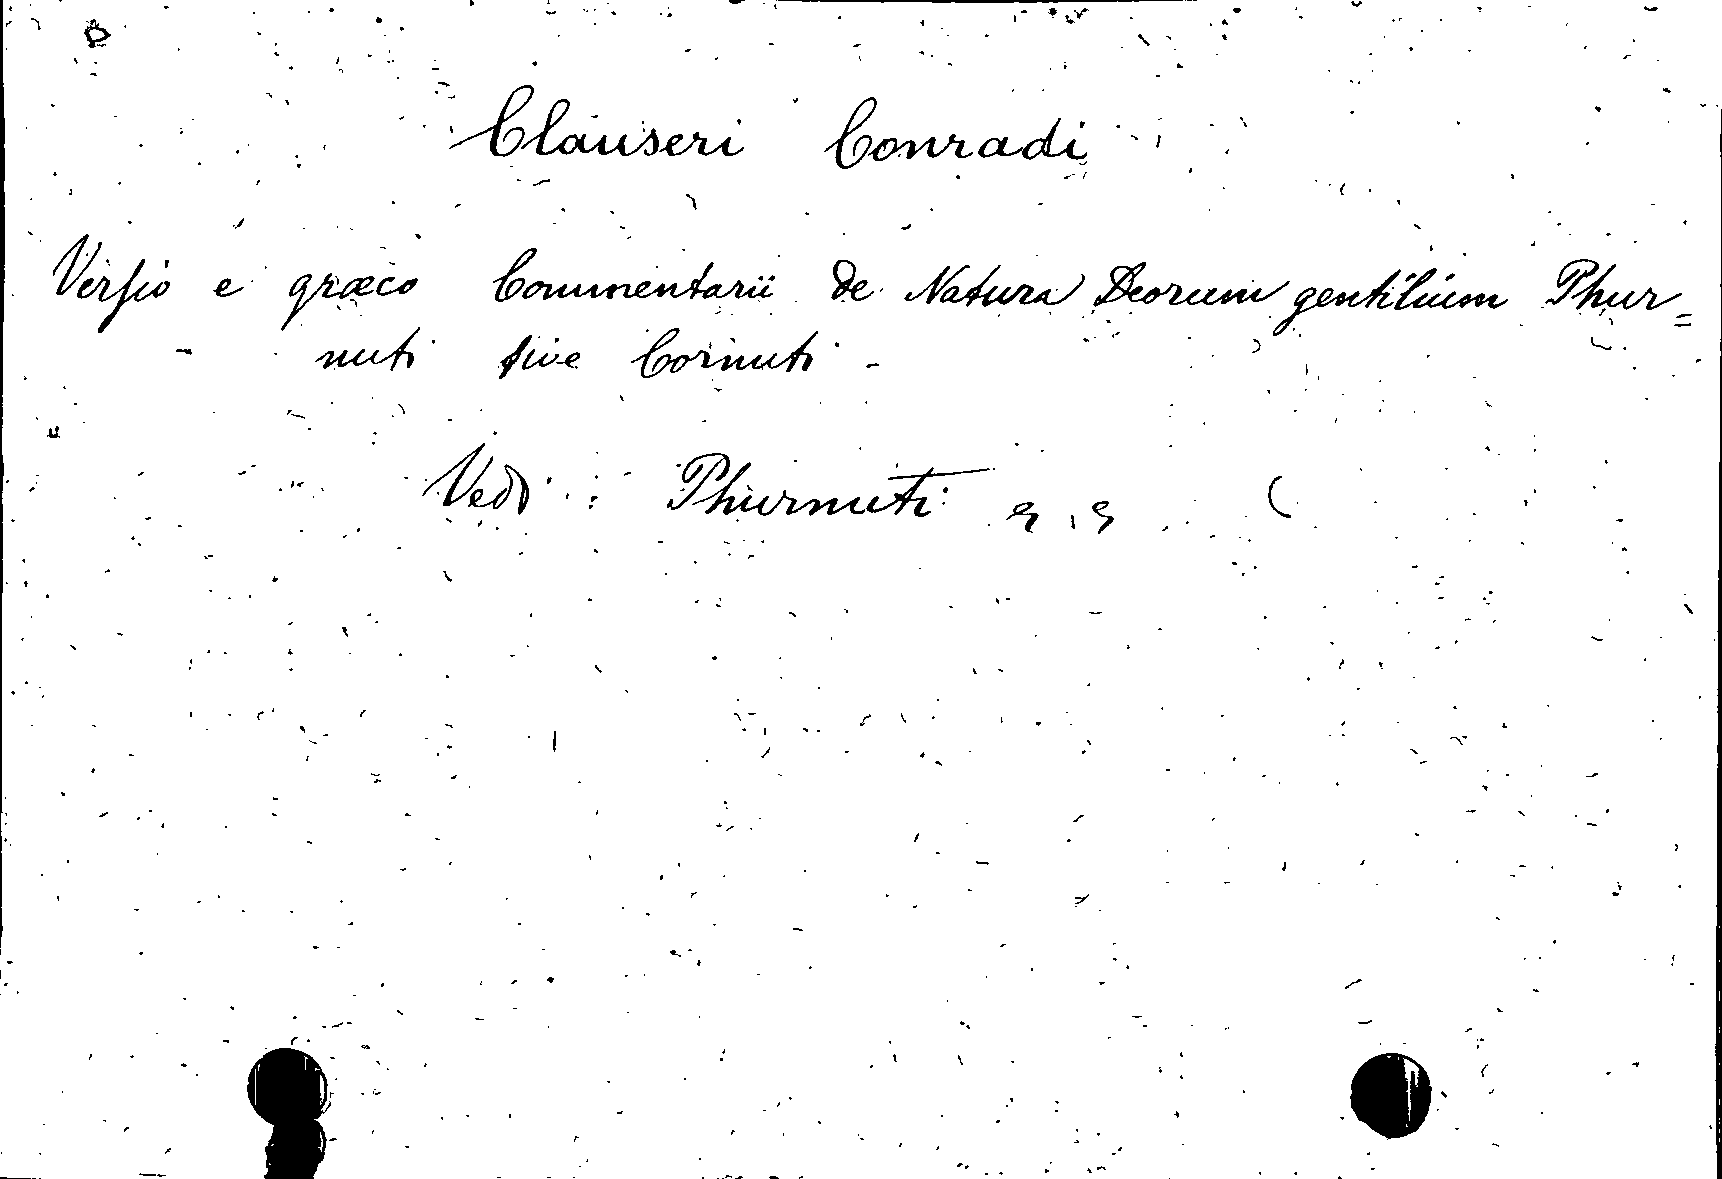 Clauseri Conradi
Versio e græco Commentarii de Natura Deorum gentilium Phur=
nuti sive Cornuti -
Vedi : Phurnuti